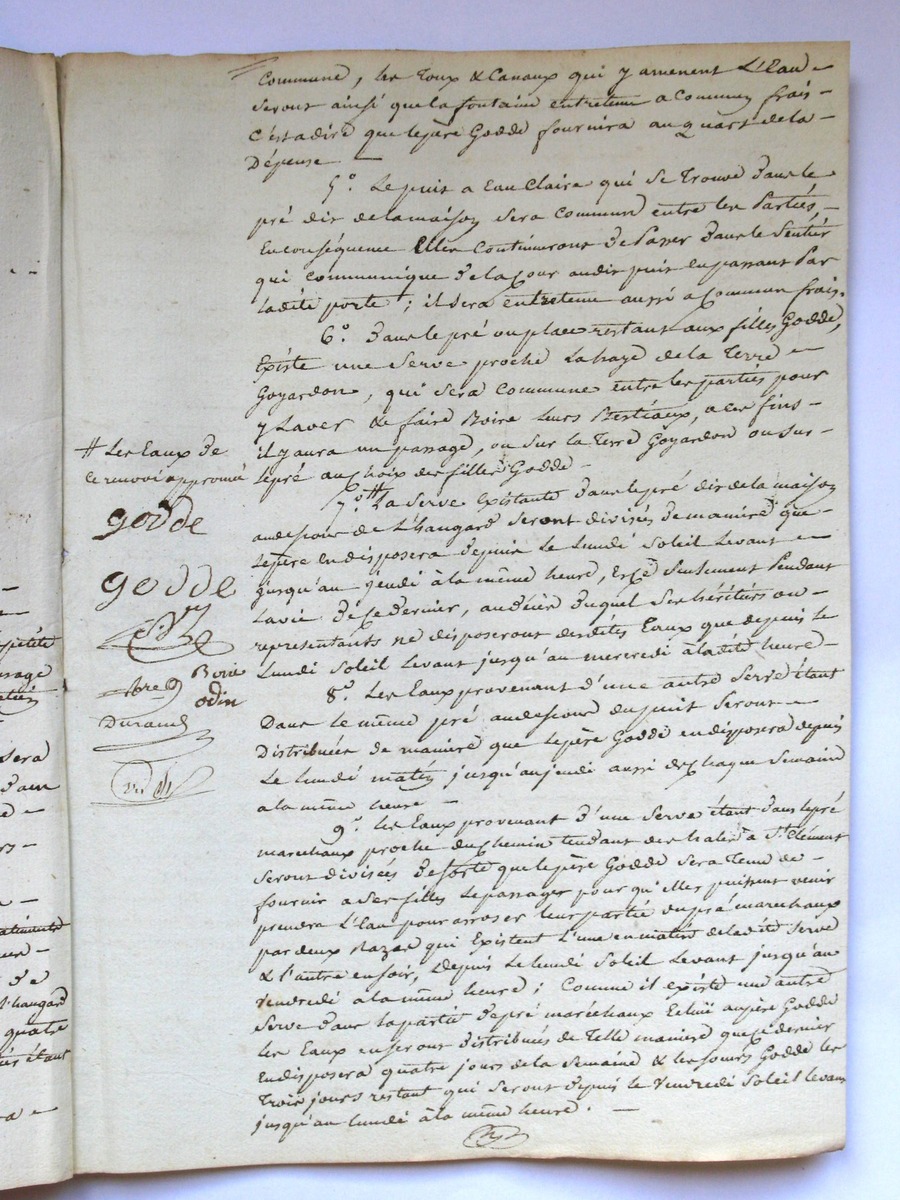 Commune, les Toux & Canaux qui y amenent L'Eau
seront ainsi que la fontaine entretenu a Commun frais
C'est a dire que le père Godde fournira au quart de la
Dépense
5°. Le puit a Eau Claire qui se Trouve dans le
pré dit de la maison sera Commun entre les Parties,
En conséquence Elles Continueront de Passer dans le Sentier
qui communique de la Cour au dit puit en passant Par
ladite porte ; il sera entretenu aussi a Commun frais.
6°. dans le pré ou place restant aux filles Godde,
Existe une Serve proche La haye de la Terre
Goyardon, qui sera commune entre les parties pour
y Laver & faire Boire Leurs Bestiaux, a ces fins
il y aura un passage, ou sur la Terre Goyardon ou sur
le pré au choix des filles Godde
7°. # La Serve Existante dans le pré dit de la maison
au dessous de L'hangard seront divisés de maniere que
le père En disposera depuis le Lundi Soleil Levant
jusqu'au jeudi à la même heure, Et ce seulement Pendant
La vie de ce dernier, au décès duquel ses héritiers ou
representants ne disposeront desdites Eaux que depuis le
Lundi Soleil Levant jusqu'au mercredi à ladite heure
8°. Les Eaux provenant d'une autre Serve étant
Dans le même pré au dessous du puit seront
Distribuées de maniere que le père Godde en disposera depuis
Le lundi matin jusqu'au jeudi aussi de chaque Semaine
a la même heure
9°. les Eaux provenant d'une Serve étant dans le pré
marechaux proche du chemin tendant des halles à St Clément
seront divisées de sorte que le père Godde sera Tenu de
fournir a ses filles Le passage pour qu'elles puissent venir
prendre L'Eau pour arroser leur partie du pré marechaux
par deux Razes qui Existent L'une en matin de ladite Serve
& l'autre en soir, Depuis Le lundi Soleil Levant jusqu'au
Vendredi à la même heure ; Comme il existe une autre
Serve dans la partie de pré maréchaux Echue au père Godde
les Eaux en seront distribuées de Telle maniere que ce dernier
En disposera quatre jours de la Semaine & les sœurs Godde les
Trois jours restant qui seront depuis le Vendredi Soleil levant
jusqu'au lundi à la même heure.
# Les Eaux de
ce renvoi approuvé
godde
godde
Borie
odin
Durand